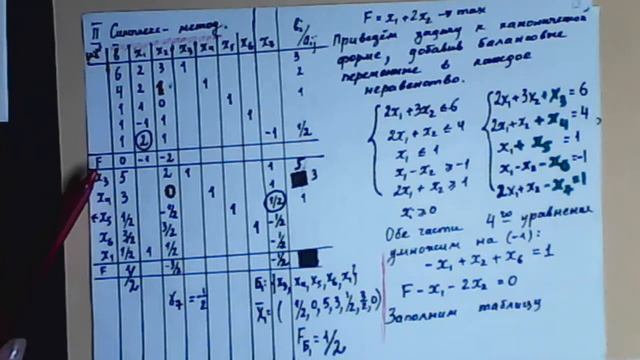 II Симплекс-метод.
б x₁ x₂ x₃ x₄ x₅ x₆ x₇ bᵢ/aᵢⱼ
6 2 3 1 3
4 2 1 1 2
1 1 0 1 1
1 -1 1 1
1 2 1 -1 1/2
F 0 -1 -2
x₃ 5 2 1 1 5
x₄ 3 0 1 1 3
x₅ 1/2 -1/2 1 1/2 1
x₆ 3/2 3/2 1 -1/2
x₁ 1/2 1 1/2 -1/2
F 1/2 -3/2 -1/2
γ₇ = -1/2
Б₁: {x₃, x₄, x₅, x₆, x₁}
x̄₁ = (1/2, 0, 5, 3, 1/2, 3/2, 0)
F_Б₁ = 1/2
F = x₁ + 2x₂ → max
Приведём задачу к канонической
форме, добавив балансовые
переменные в каждое
неравенство.
2x₁ + 3x₂ ≤ 6
2x₁ + x₂ ≤ 4
x₁ ≤ 1
x₁ - x₂ ≥ -1
2x₁ + x₂ ≥ 1
xᵢ ≥ 0
2x₁ + 3x₂ + x₃ = 6
2x₁ + x₂ + x₄ = 4
x₁ + x₅ = 1
x₁ - x₂ - x₆ = -1
2x₁ + x₂ - x₇ = 1
Обе части 4го уравнения
умножим на (-1):
-x₁ + x₂ + x₆ = 1
F - x₁ - 2x₂ = 0
Заполним таблицу